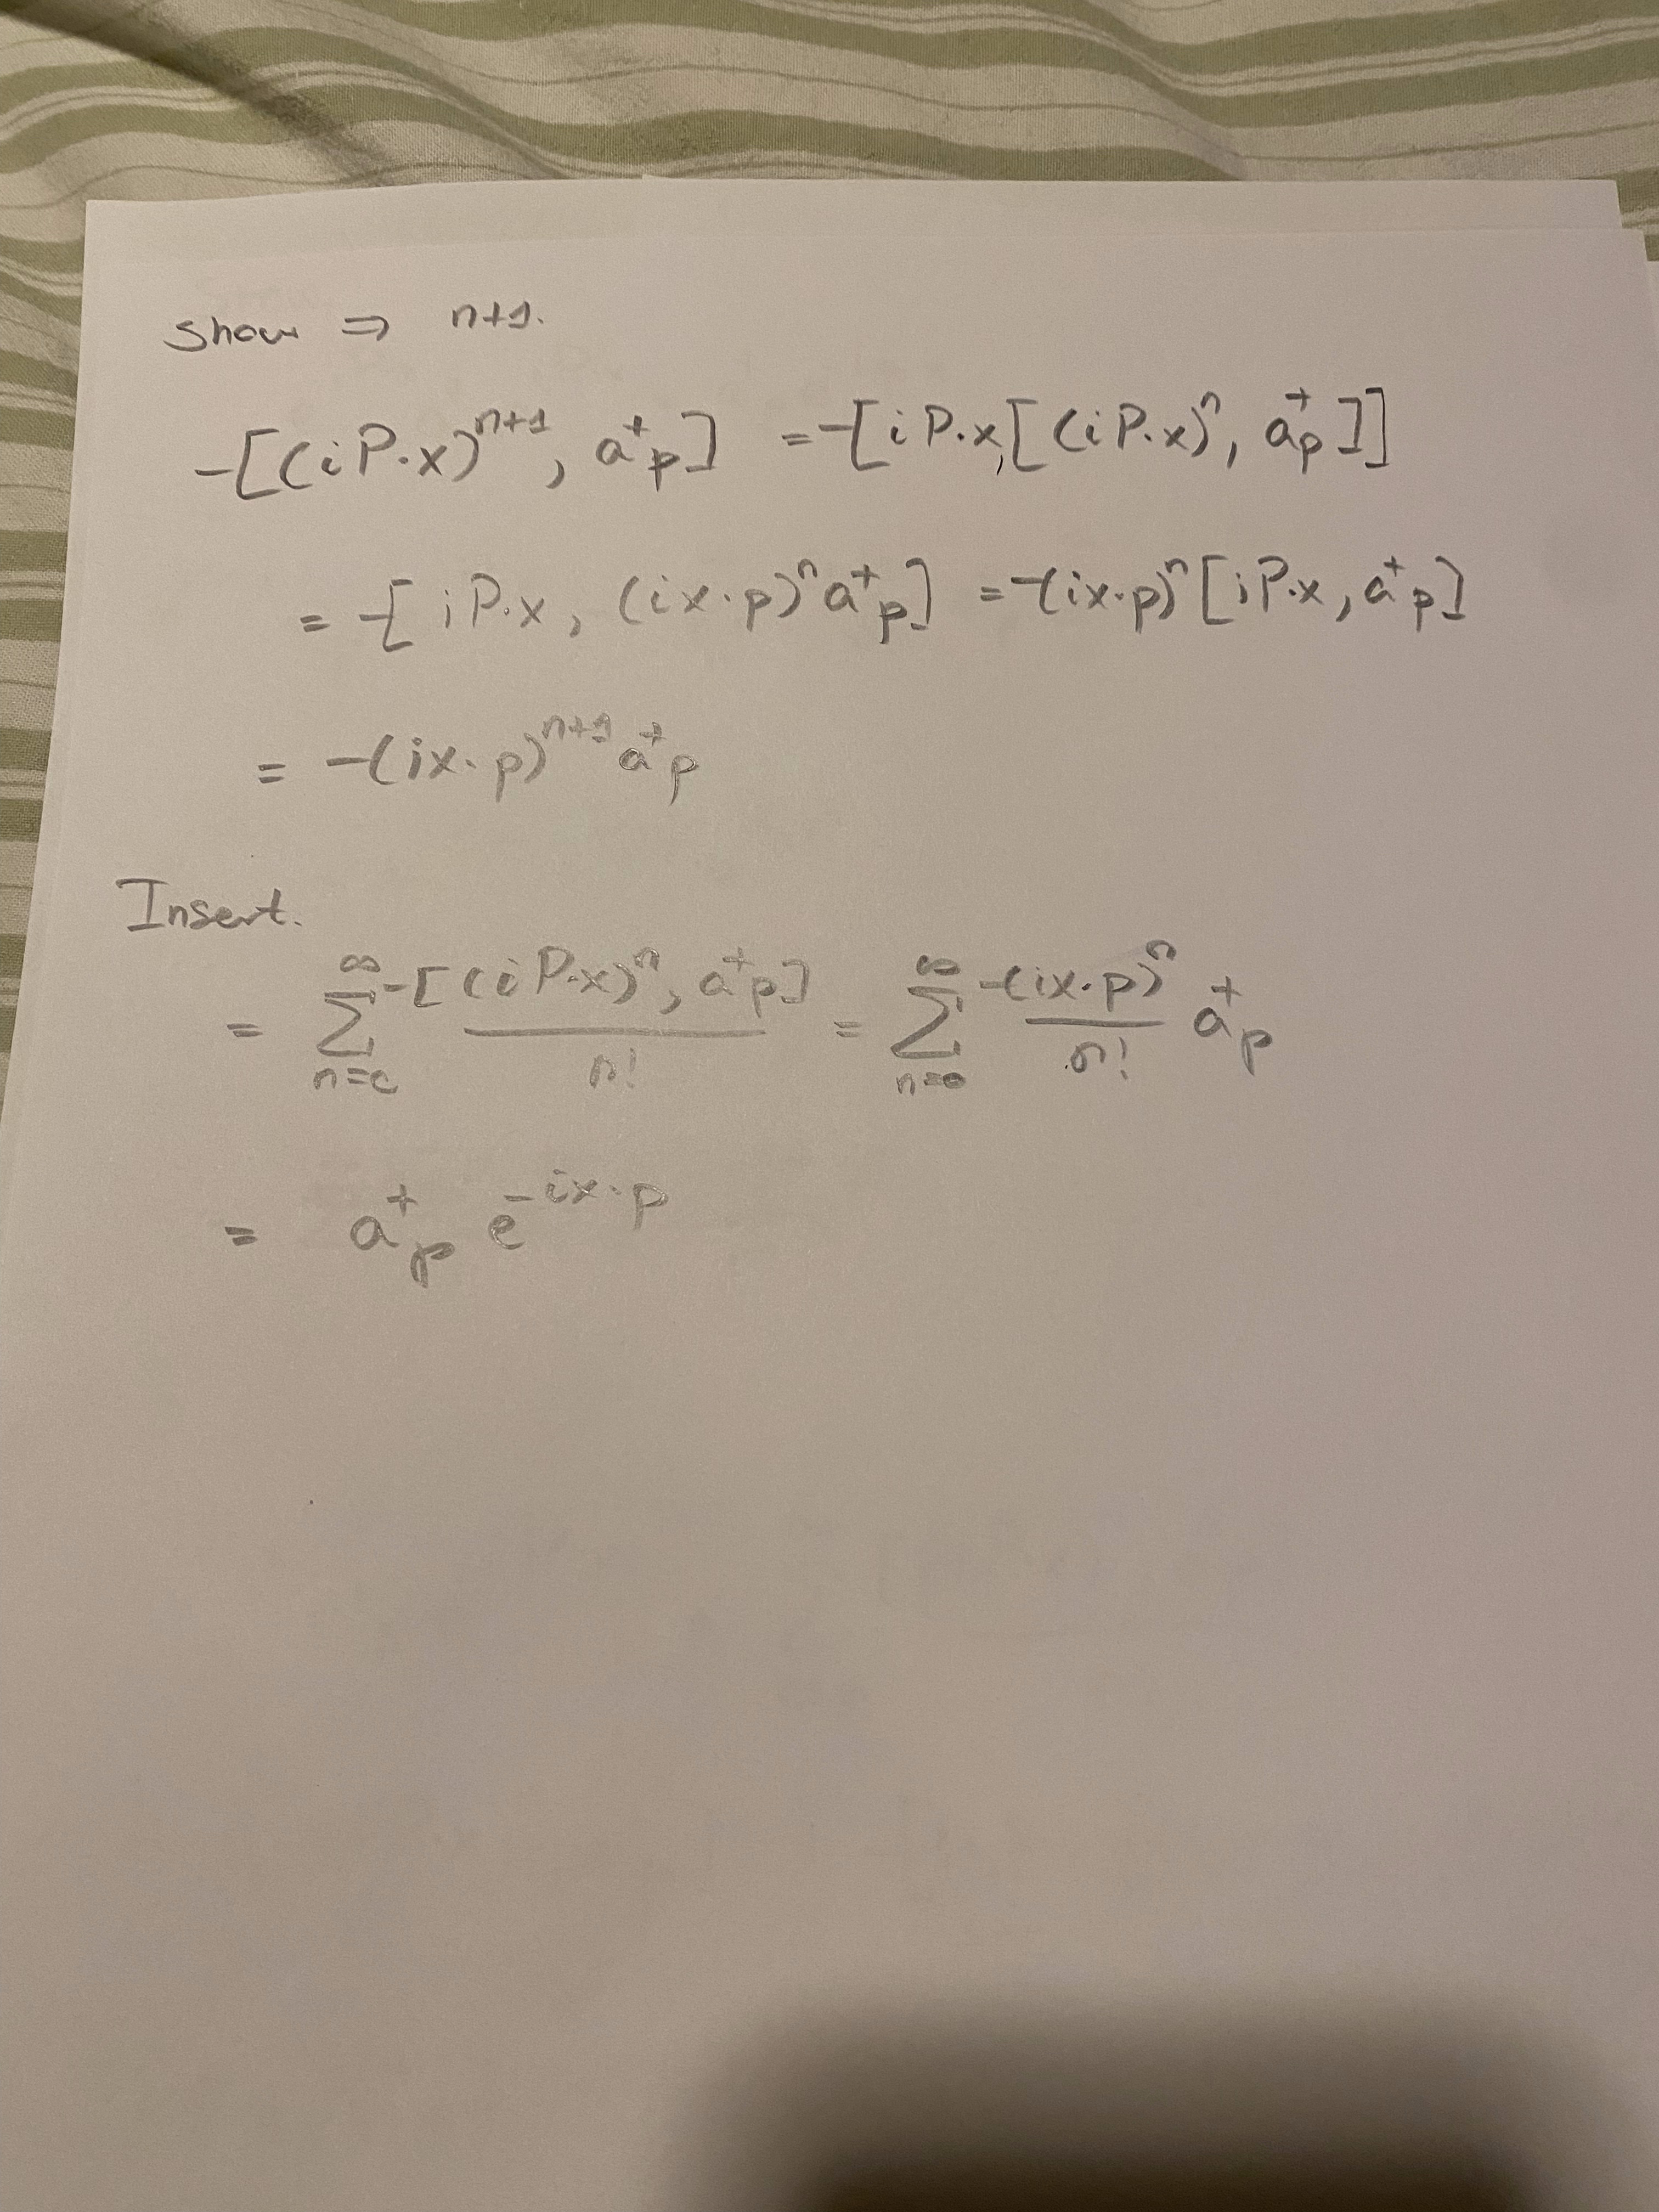 Show ⇒ n+1.
-[(iP·x)^{n+1}, a^+_p] = -[iP·x,[(iP·x)^n, a^+_p]]
= -[iP·x, (ix·p)^n a^+_p] = -(ix·p)^n [iP·x, a^+_p]
= -(ix·p)^{n+1} a^+_p
Insert.
= \sum_{n=0}^{∞} \frac{-[(iP·x)^n, a^+_p]}{n!} = \sum_{n=0}^{∞} \frac{-(ix·p)^n}{n!} a^+_p
= a^+_p e^{-ix·p}